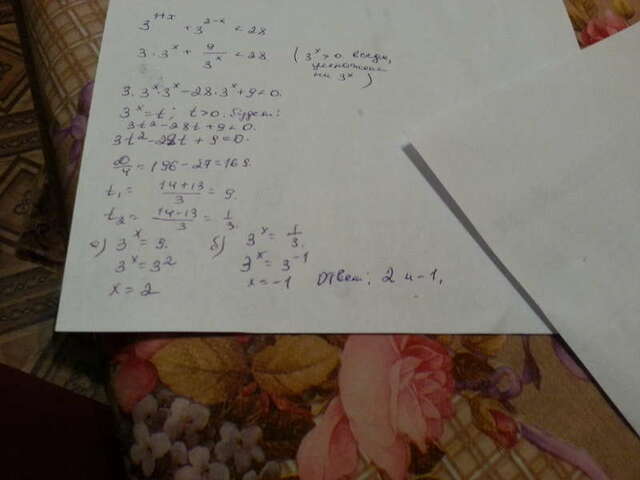 3^{1+x} + 3^{2-x} < 28
3 · 3^x + 9/3^x < 28 (3^x > 0 всегда,
умножаем
на 3^x)
3 · 3^x 3^x - 28 · 3^x + 9 < 0.
3^x = t; t > 0. будет:
3t² - 28t + 9 < 0.
3t² - 28t + 9 = 0.
D/4 = 196 - 27 = 169.
t₁ = (14+13)/3 = 9.
t₂ = (14-13)/3 = 1/3.
а) 3^x = 9. б) 3^x = 1/3.
3^x = 3² 3^x = 3^{-1}
x = 2 x = -1 Ответ: 2 и -1,